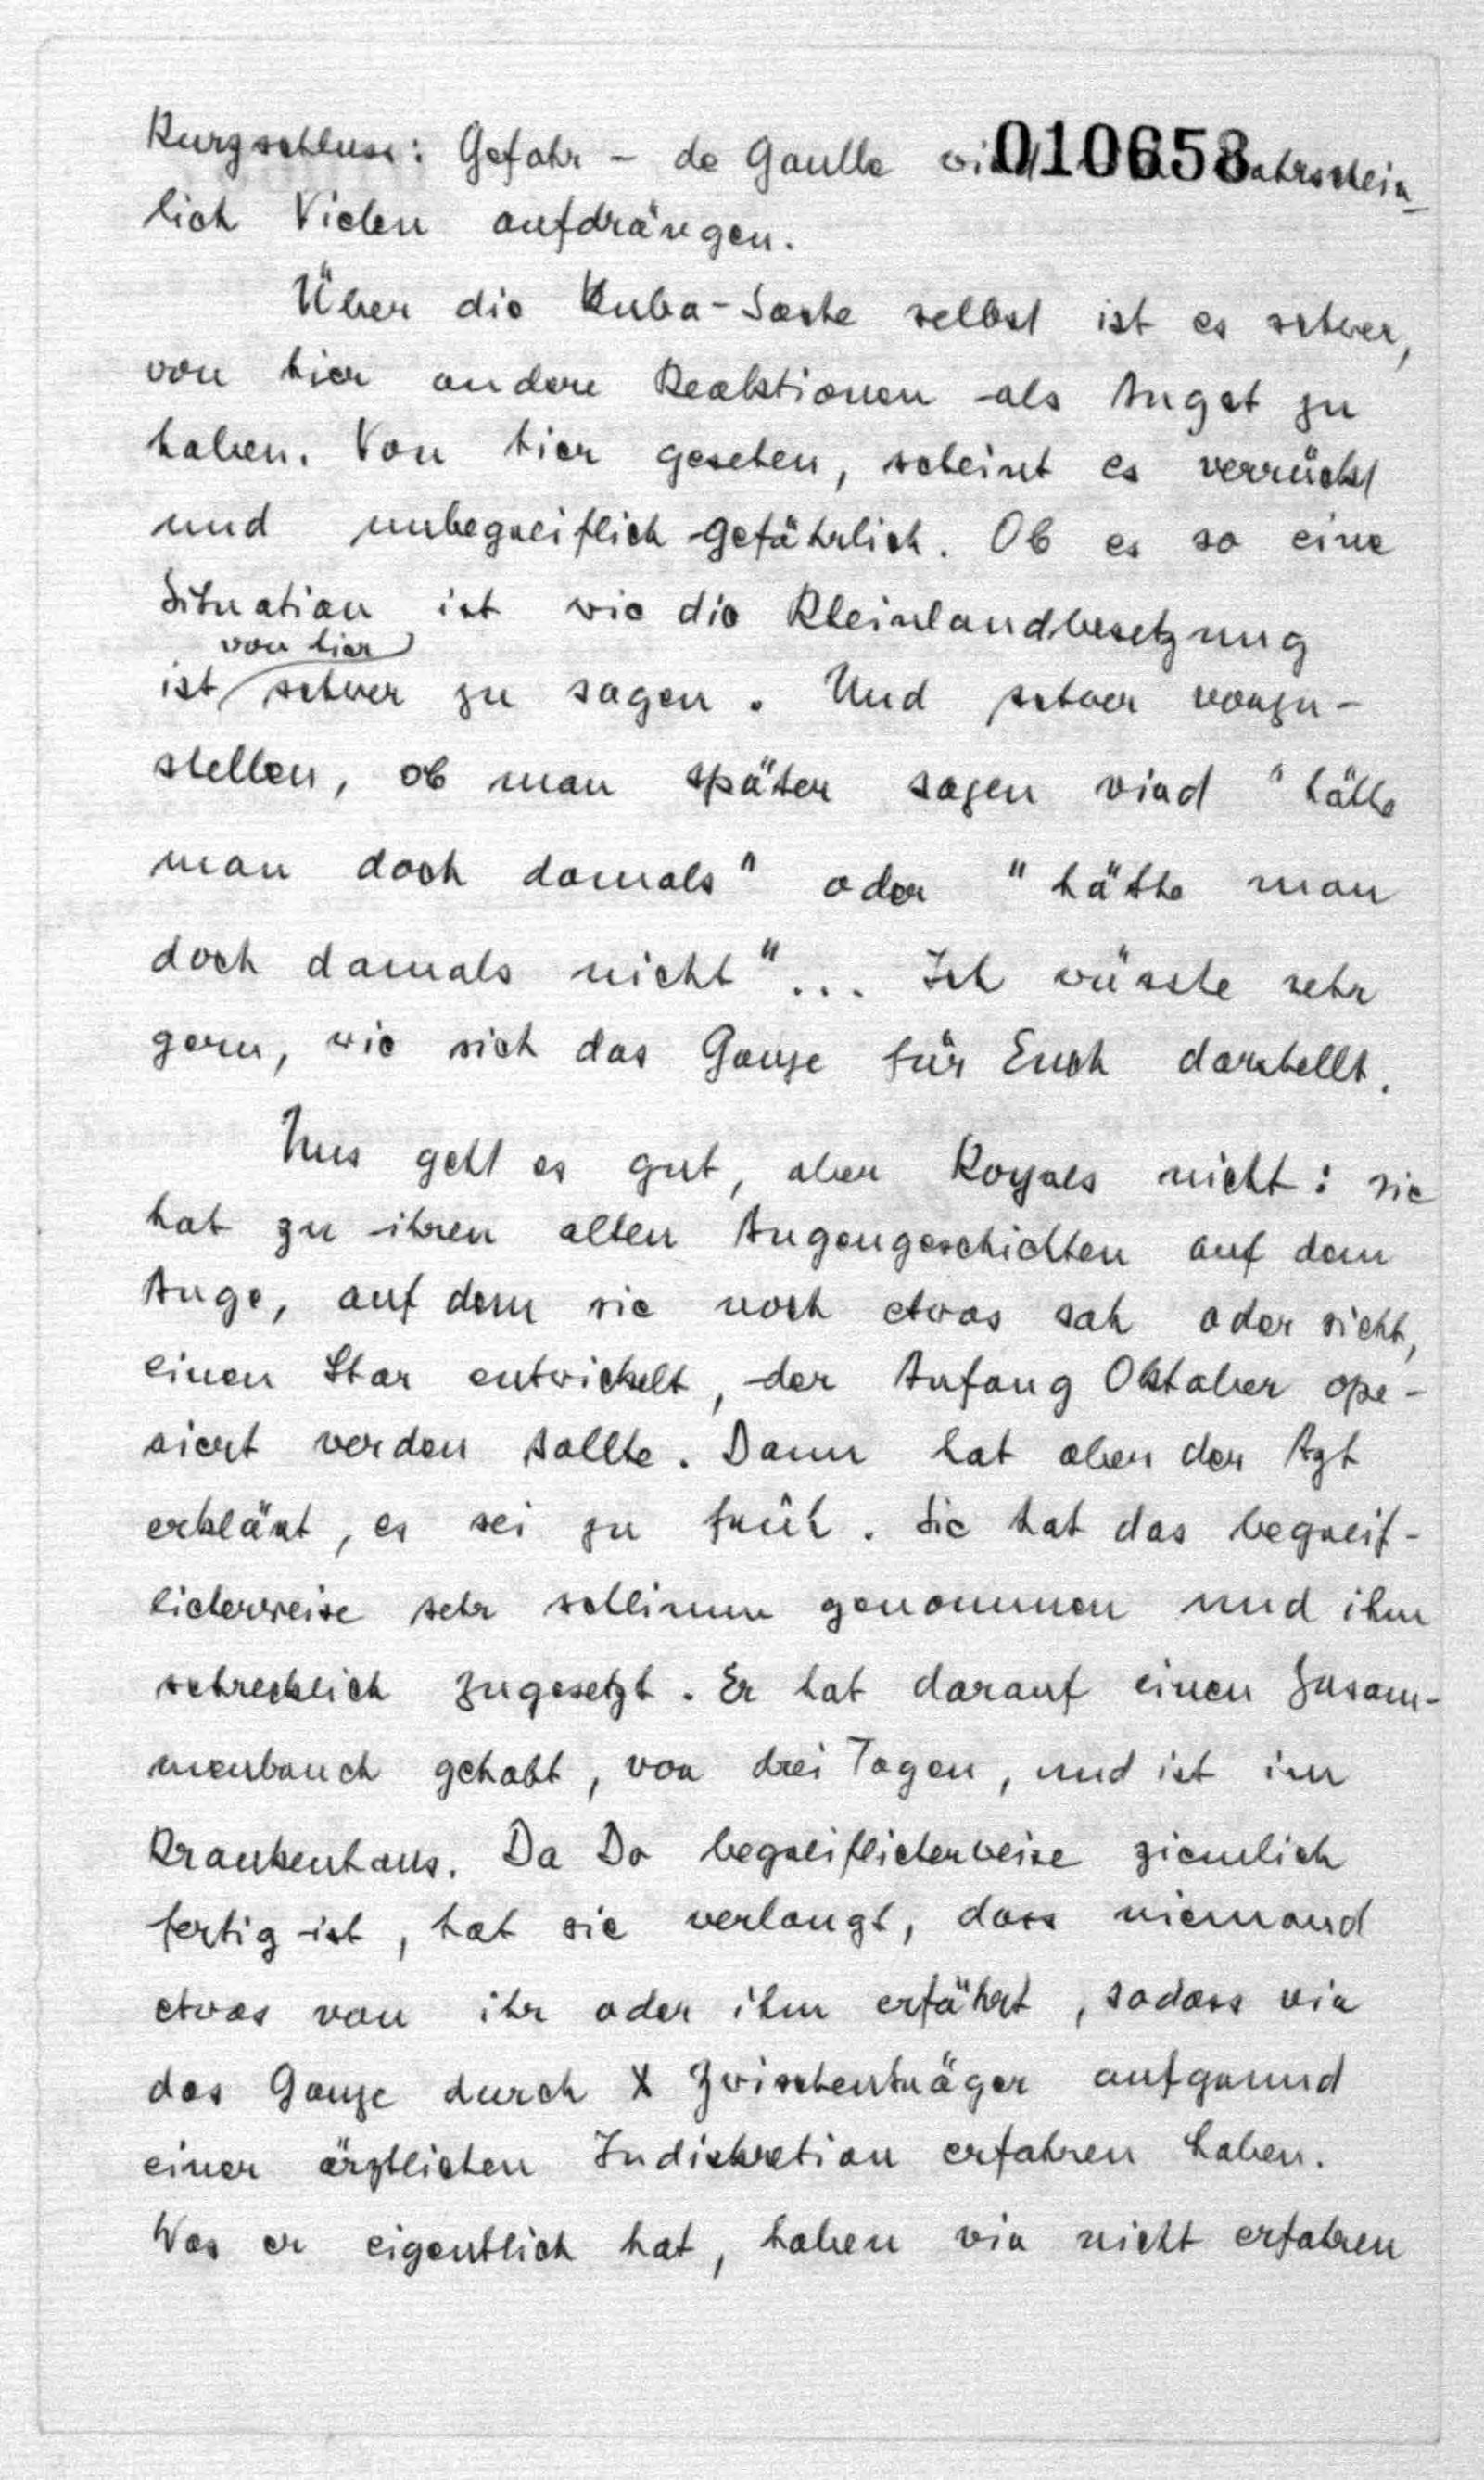 Kurzschluss: Gefahr – de Gaulle wird 010658 wahrschein-
lich Vielen aufdrängen.
Über die Kuba-Sache selbst ist es schwer,
von hier andere Reaktionen als Angst zu
haben. Von hier gesehen, scheint es verrückt
und unbegreiflich gefährlich. Ob es so eine
Situation ist wie die Rheinlandbesetzung
von hier
ist schwer zu sagen. Und schwer vorzu-
stellen, ob man später sagen wird "hätte
man doch damals" oder "hätte man
doch damals nicht"... Ich wüsste sehr
gern, wie sich das Ganze für Euch darstellt.
Uns geht es gut, aber Royals nicht: sie
hat zu ihren alten Augengeschichten auf dem
Auge, auf dem sie noch etwas sah oder sieht,
einen Star entwickelt, der Anfang Oktober ope-
riert werden sollte. Dann hat aber der Azt
erklärt, es sei zu früh. Sie hat das begreif-
licherweise sehr schlimm genommen und ihm
schrecklich zugesetzt. Er hat darauf einen Zusam-
menbruch gehabt, vor drei Tagen, und ist im
Krankenhaus. Da Do begreiflicherweise ziemlich
fertig ist, hat sie verlangt, dass niemand
etwas von ihr oder ihm erfährt, sodass wir
das Ganze durch X Zwischenträger aufgrund
einer ärztlichen Indiskretion erfahren haben.
Was er eigentlich hat, haben wir nicht erfahren